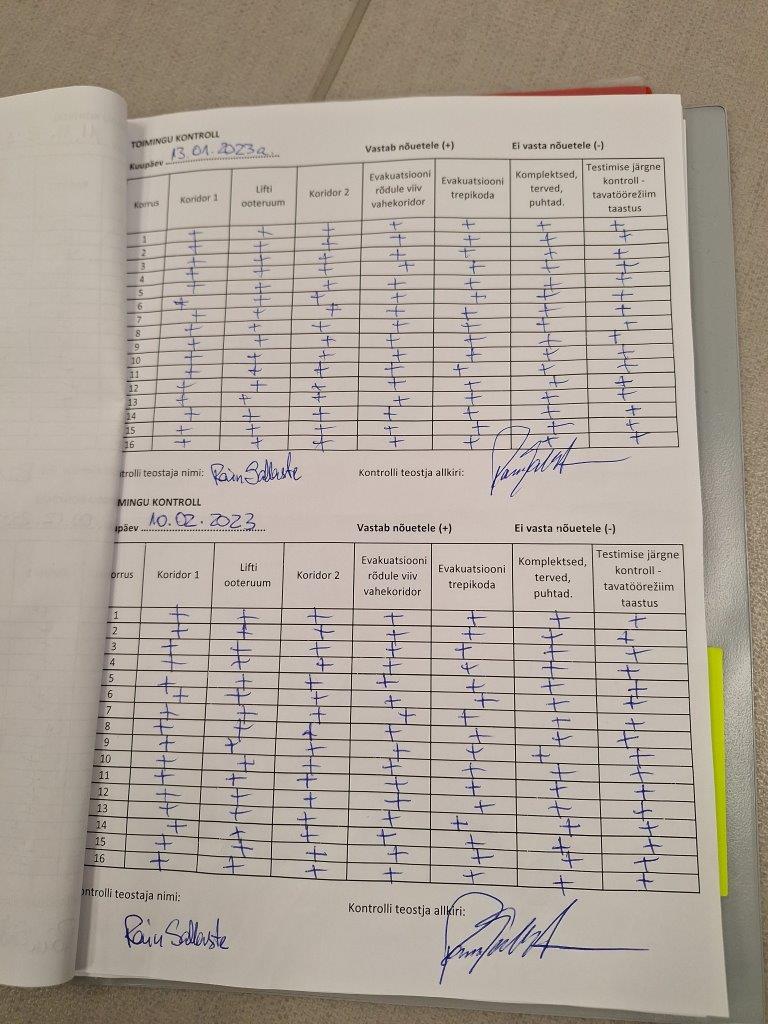 TOIMINGU KONTROLL
Kuupäev 13.01.2023a. Vastab nõuetele (+) Ei vasta nõuetele (-)
Korrus Koridor 1 Lifti ooteruum Koridor 2 Evakuatsiooni rõdule viiv vahekoridor Evakuatsiooni trepikoda Komplektsed, terved, puhtad. Testimise järgne kontroll - tavatöörežiim taastus
1 + + + + + + +
2 + + + + + + +
3 + + + + + + +
4 + + + + + + +
5 + + + + + + +
6 + + + + + + +
7 + + + + + + +
8 + + + + + + +
9 + + + + + + +
10 + + + + + + +
11 + + + + + + +
12 + + + + + + +
13 + + + + + + +
14 + + + + + + +
15 + + + + + + +
16 + + + + + + +
ntrolli teostaja nimi: Rain Sallaste Kontrolli teostja allkiri:
MINGU KONTROLL
upäev 10.02.2023 Vastab nõuetele (+) Ei vasta nõuetele (-)
orrus Koridor 1 Lifti ooteruum Koridor 2 Evakuatsiooni rõdule viiv vahekoridor Evakuatsiooni trepikoda Komplektsed, terved, puhtad. Testimise järgne kontroll - tavatöörežiim taastus
1 + + + + + + +
2 + + + + + + +
3 + + + + + + +
4 + + + + + + +
5 + + + + + + +
6 + + + + + + +
7 + + + + + + +
8 + + + + + + +
9 + + + + + + +
10 + + + + + + +
11 + + + + + + +
12 + + + + + + +
13 + + + + + + +
14 + + + + + + +
15 + + + + + + +
16 + + + + + + +
ontrolli teostaja nimi: Kontrolli teostja allkiri:
Rain Sallaste